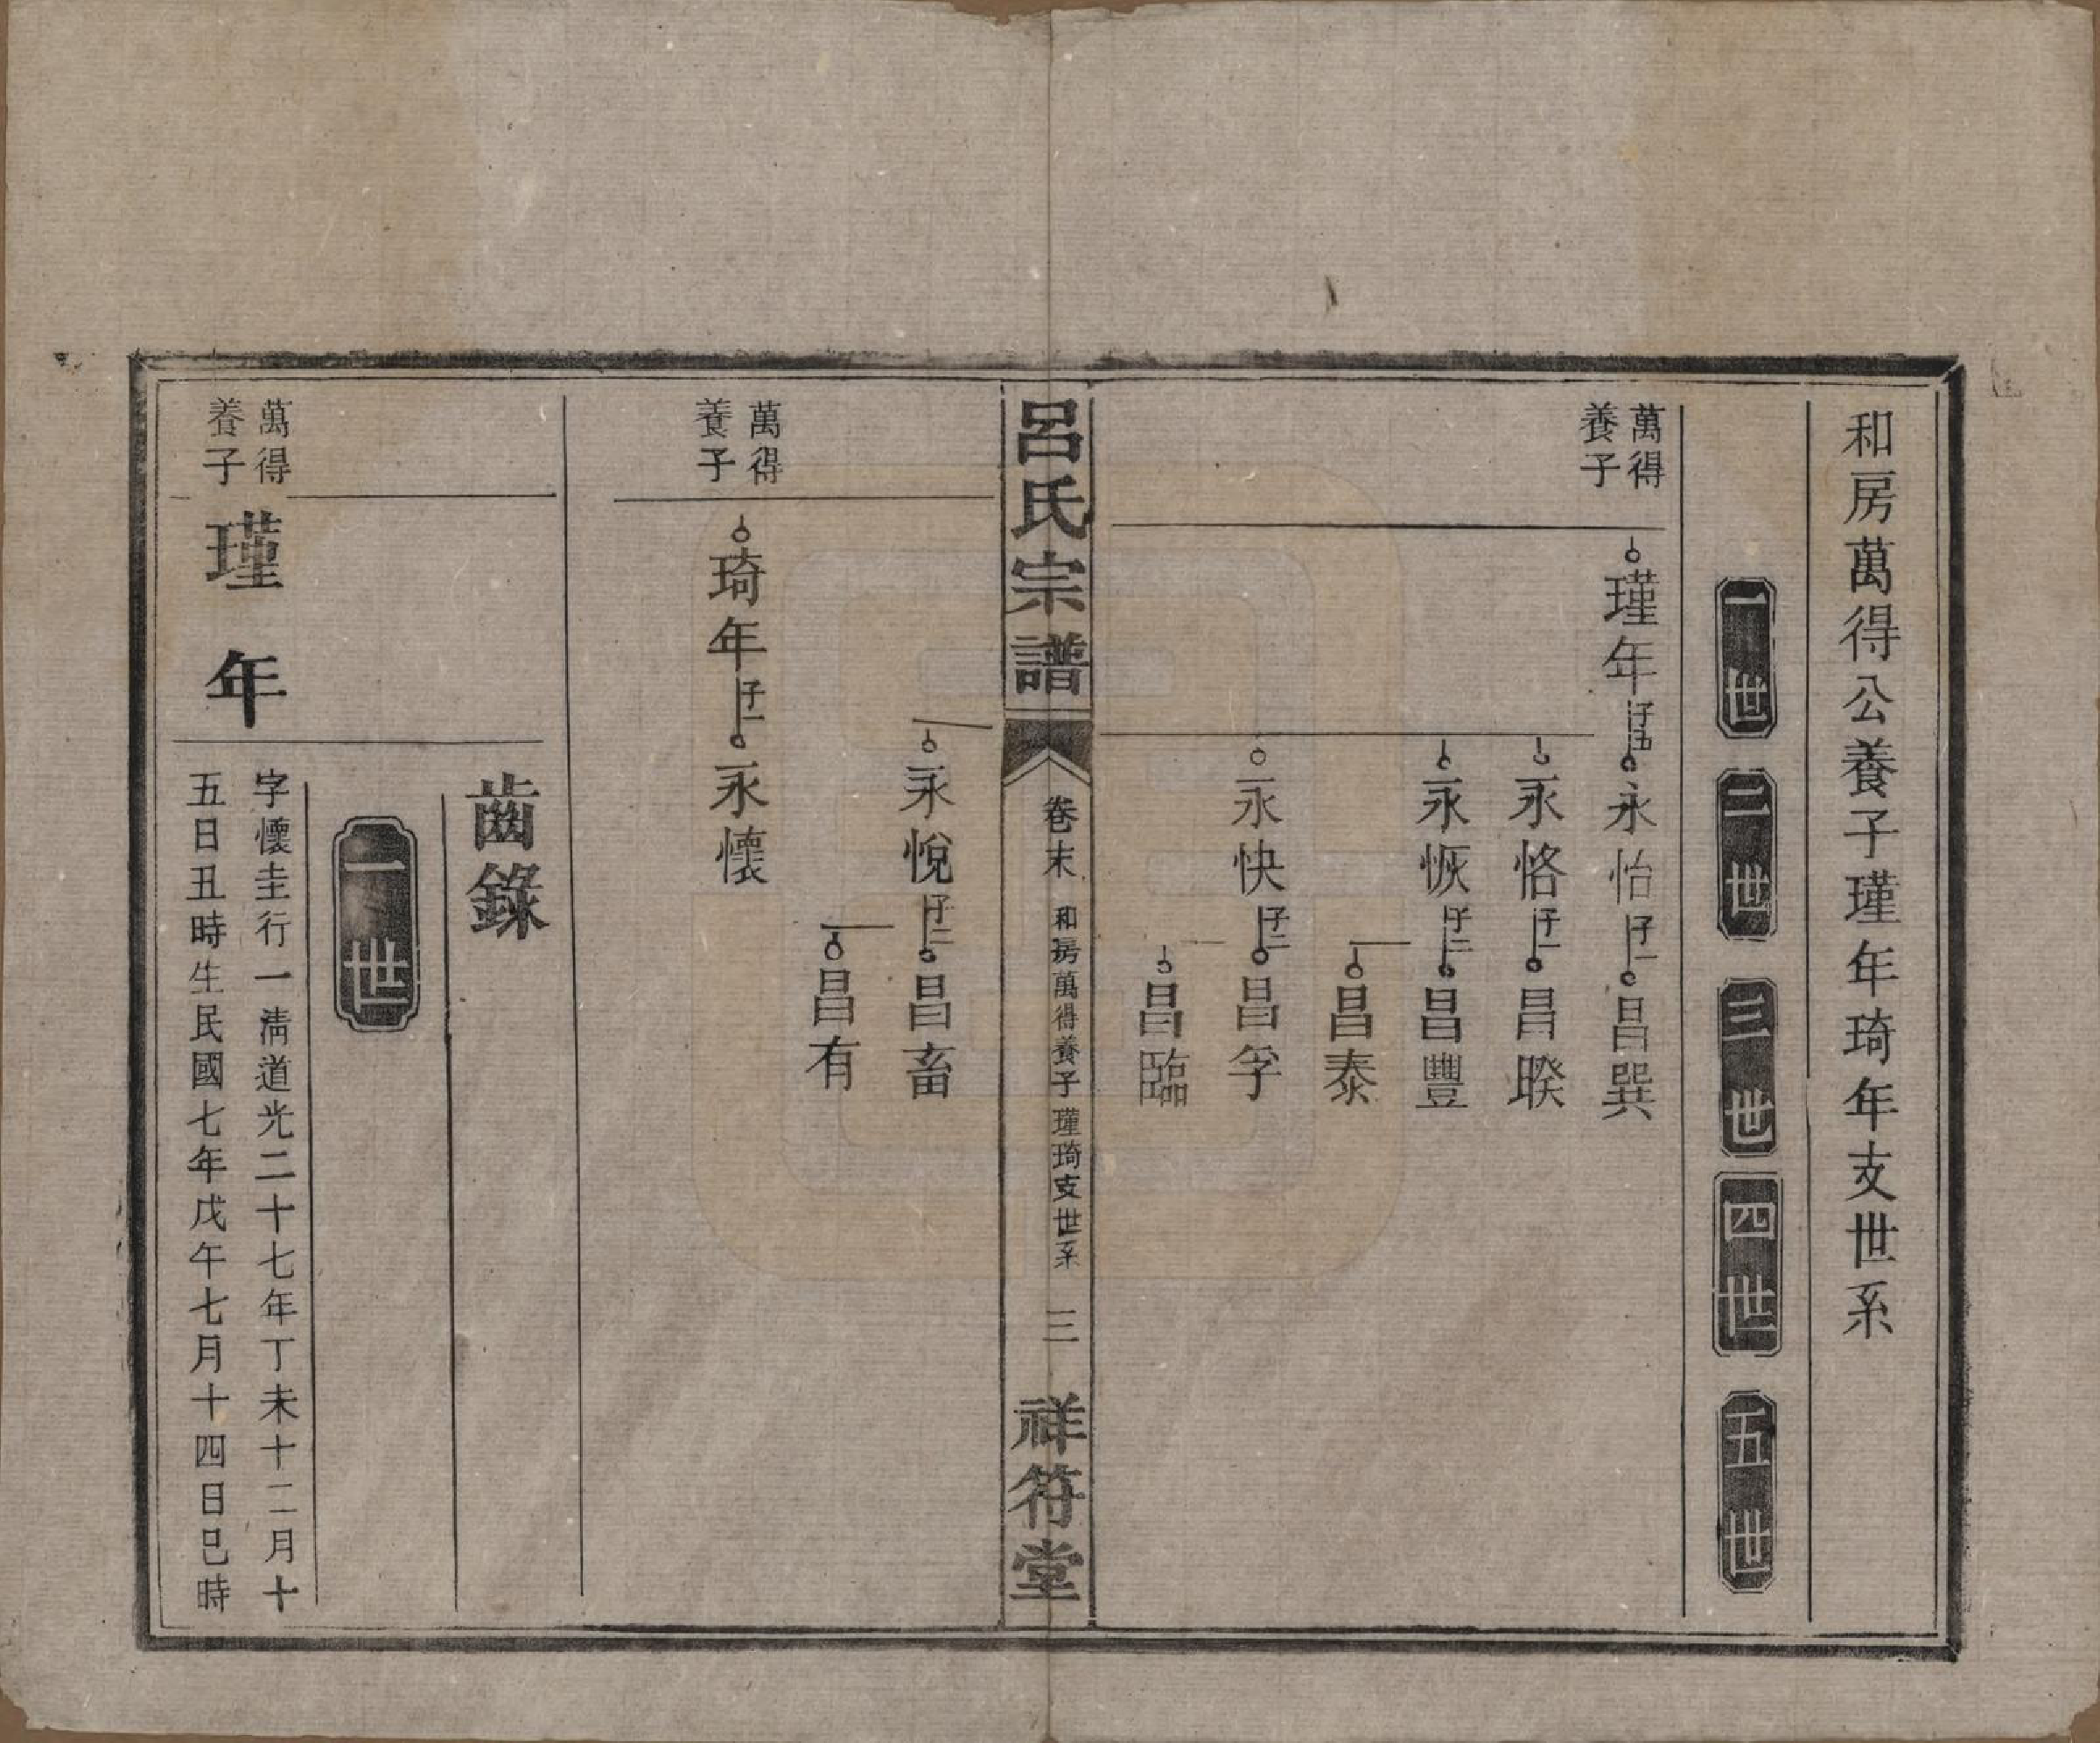 和房萬得公養子瑾年琦年支世系
一世
二世
三世
四世
五世
萬得
養子
瑾年
子五
永怡
子一
昌巽
永恪
子一
昌暌
永恢
子二
昌豐
昌泰
永快
子二
昌孚
昌臨
呂氏宗譜
卷末
和房萬得養子瑾琦支世系
三
祥符堂
永悅
子二
昌畜
昌有
萬得
養子
琦年
子一
永懷
齒錄
一世
萬得
養子
瑾年
字懷圭行一淸道光二十七年丁未十二月十
五日丑時生民國七年戊午七月十四日巳時